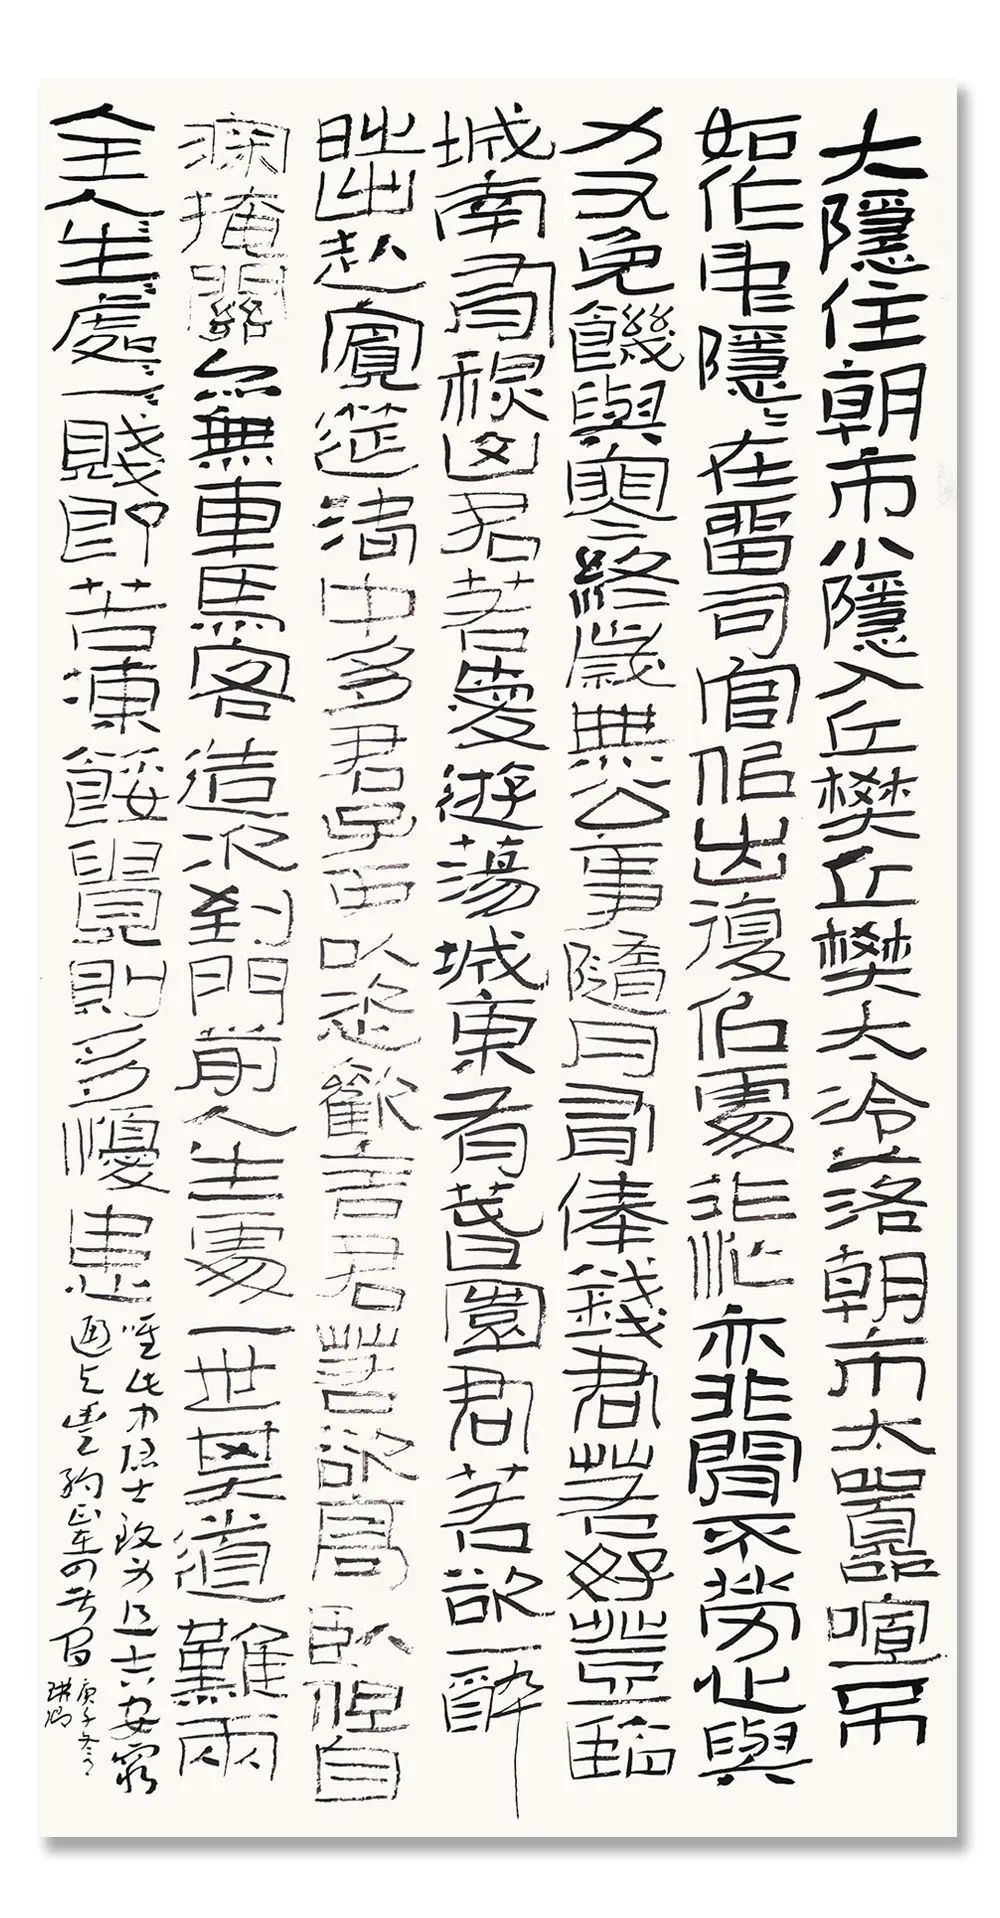 大隱住朝市小隱入丘樊丘樊太冷落朝市太囂喧不
如作中隱隱在留司官似出復似處非忙亦非閒不勞心與
力又免饑與寒終歲無公事隨月有俸錢君若好登臨
城南有秋山君若愛遊蕩城東有春園君若欲一醉
時出赴賓筵洛中多君子可以恣歡言君若欲高臥但自
深掩關亦無車馬客造次到門前人生處一世其道難兩
全人生處一賤即苦凍餒貴則多憂患
唯此中隱士致身吉且安窮
通與豐約正在四者間
庚子冬月